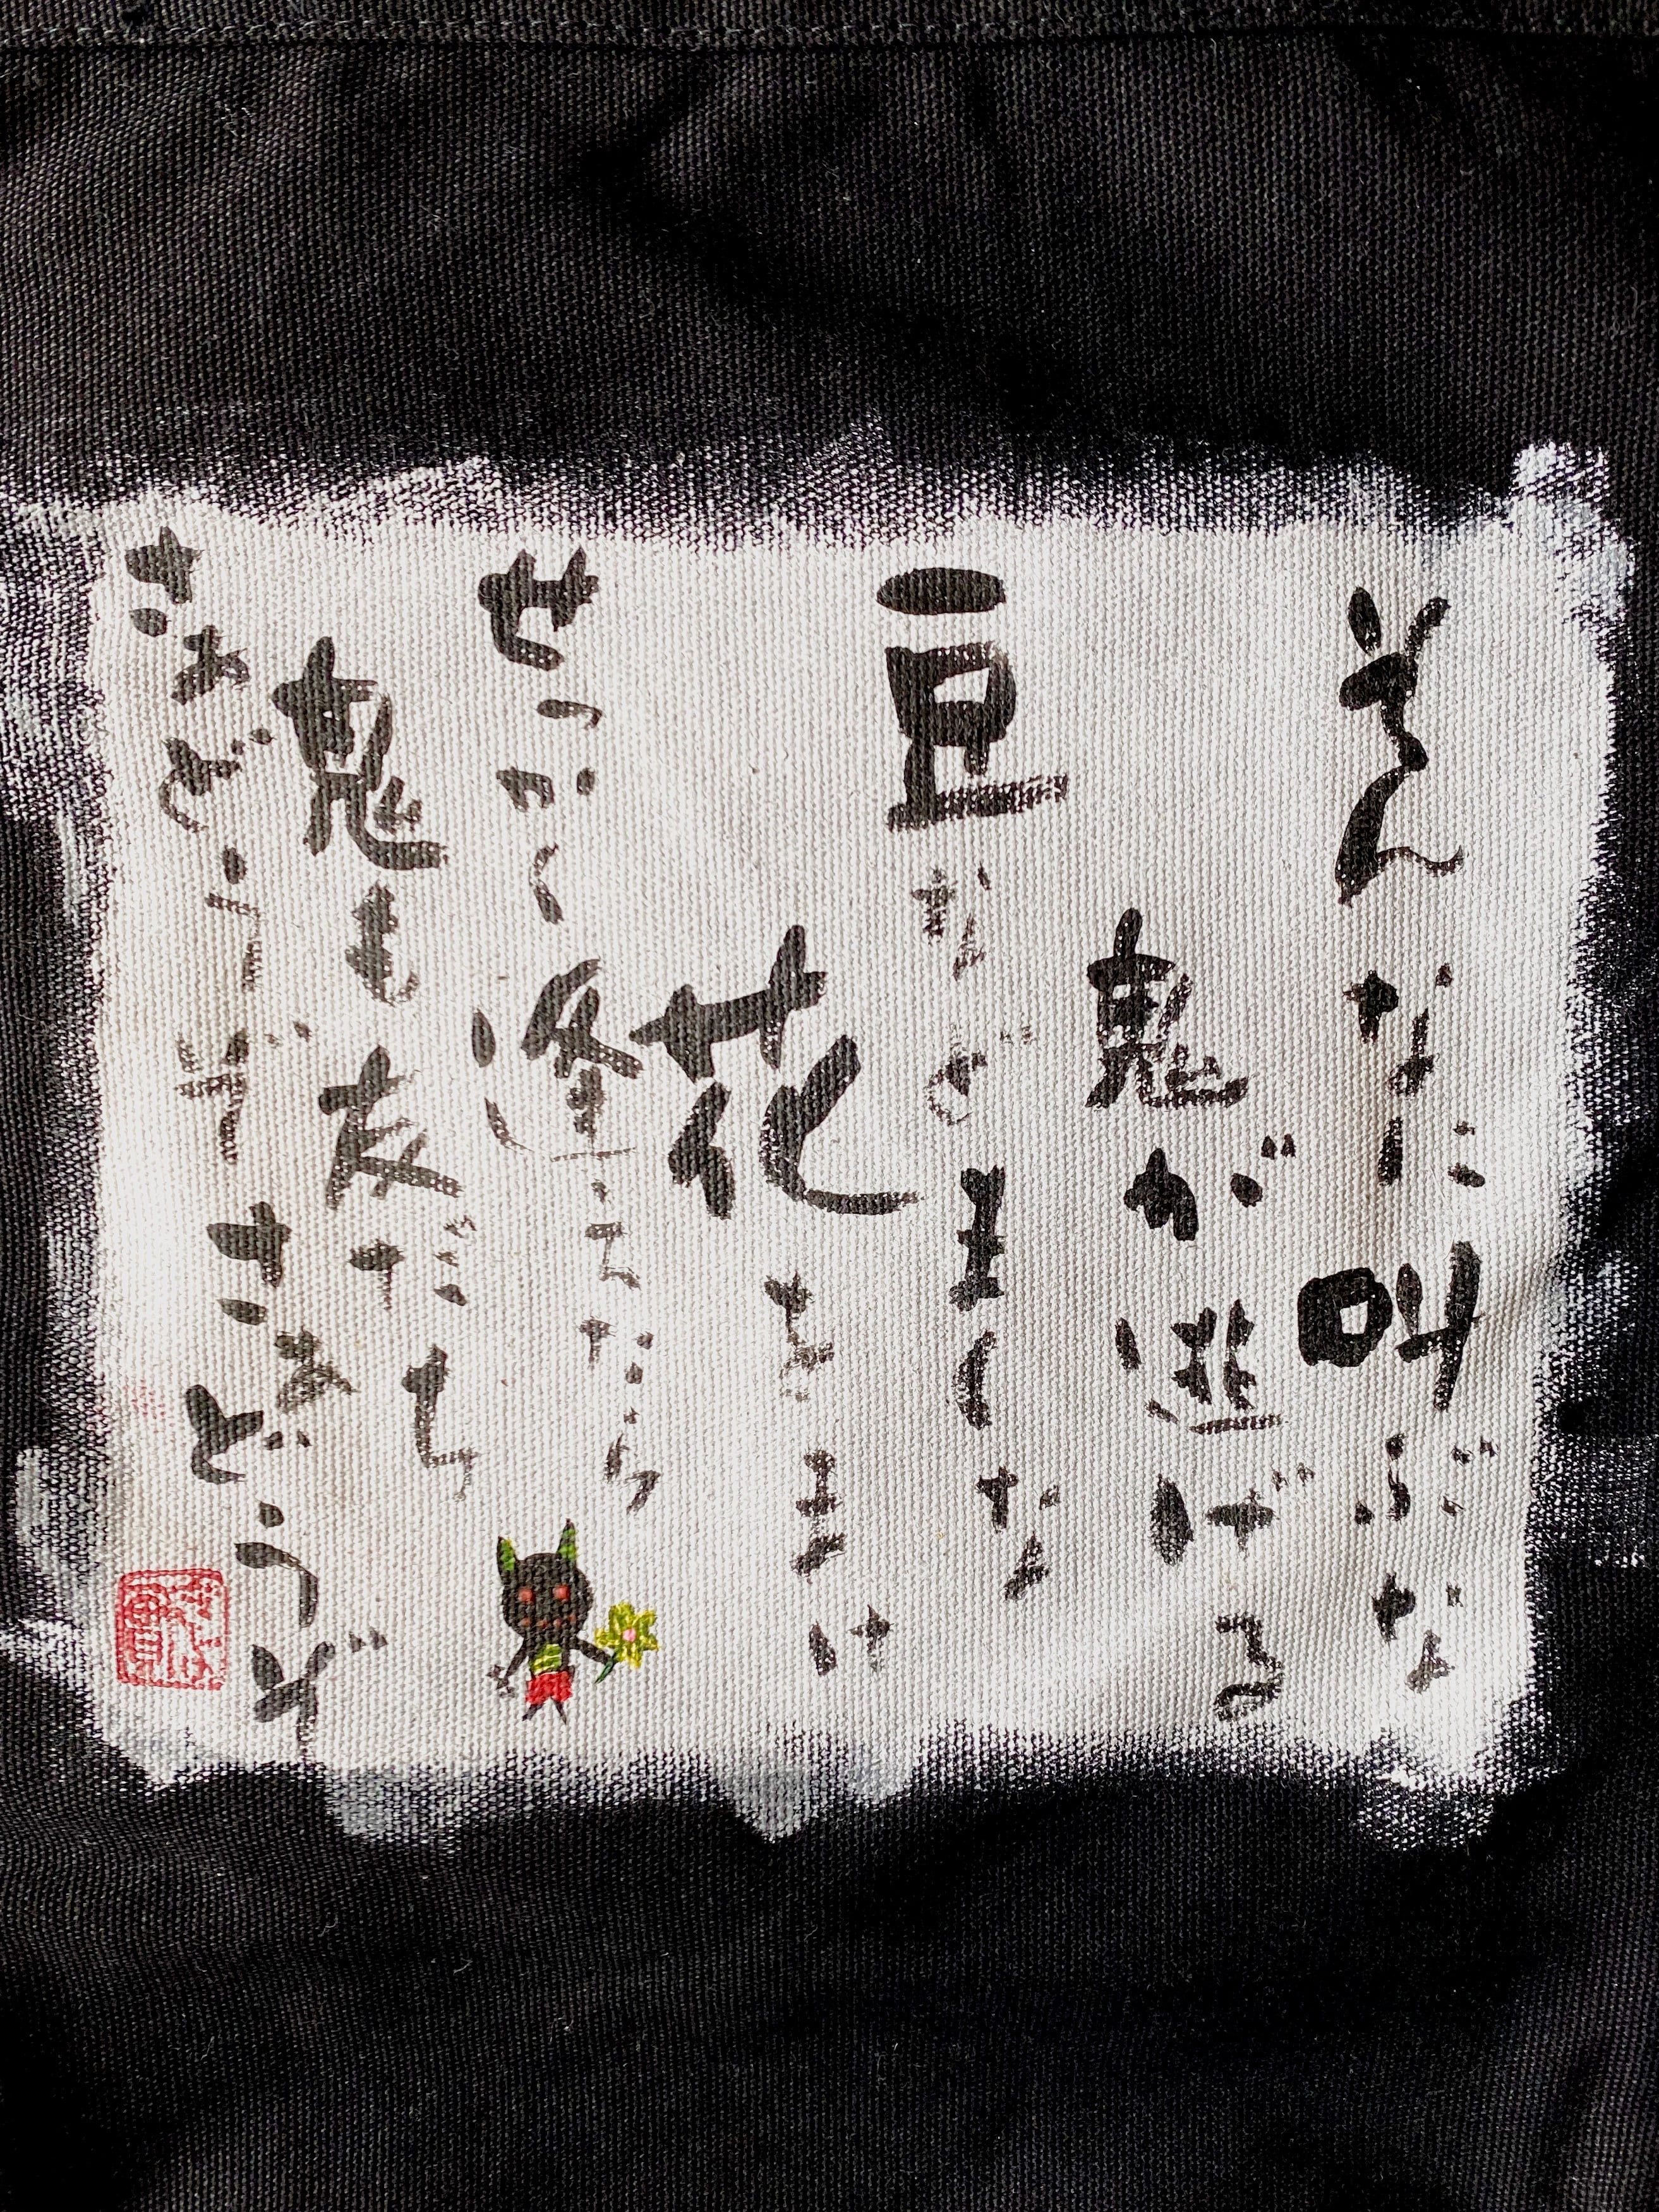 そんなに叫ぶな
鬼が逃げる
豆などまくな
花をまけ
せっかく
逢えたら
鬼も友だち
さあどうぞさあどうぞ